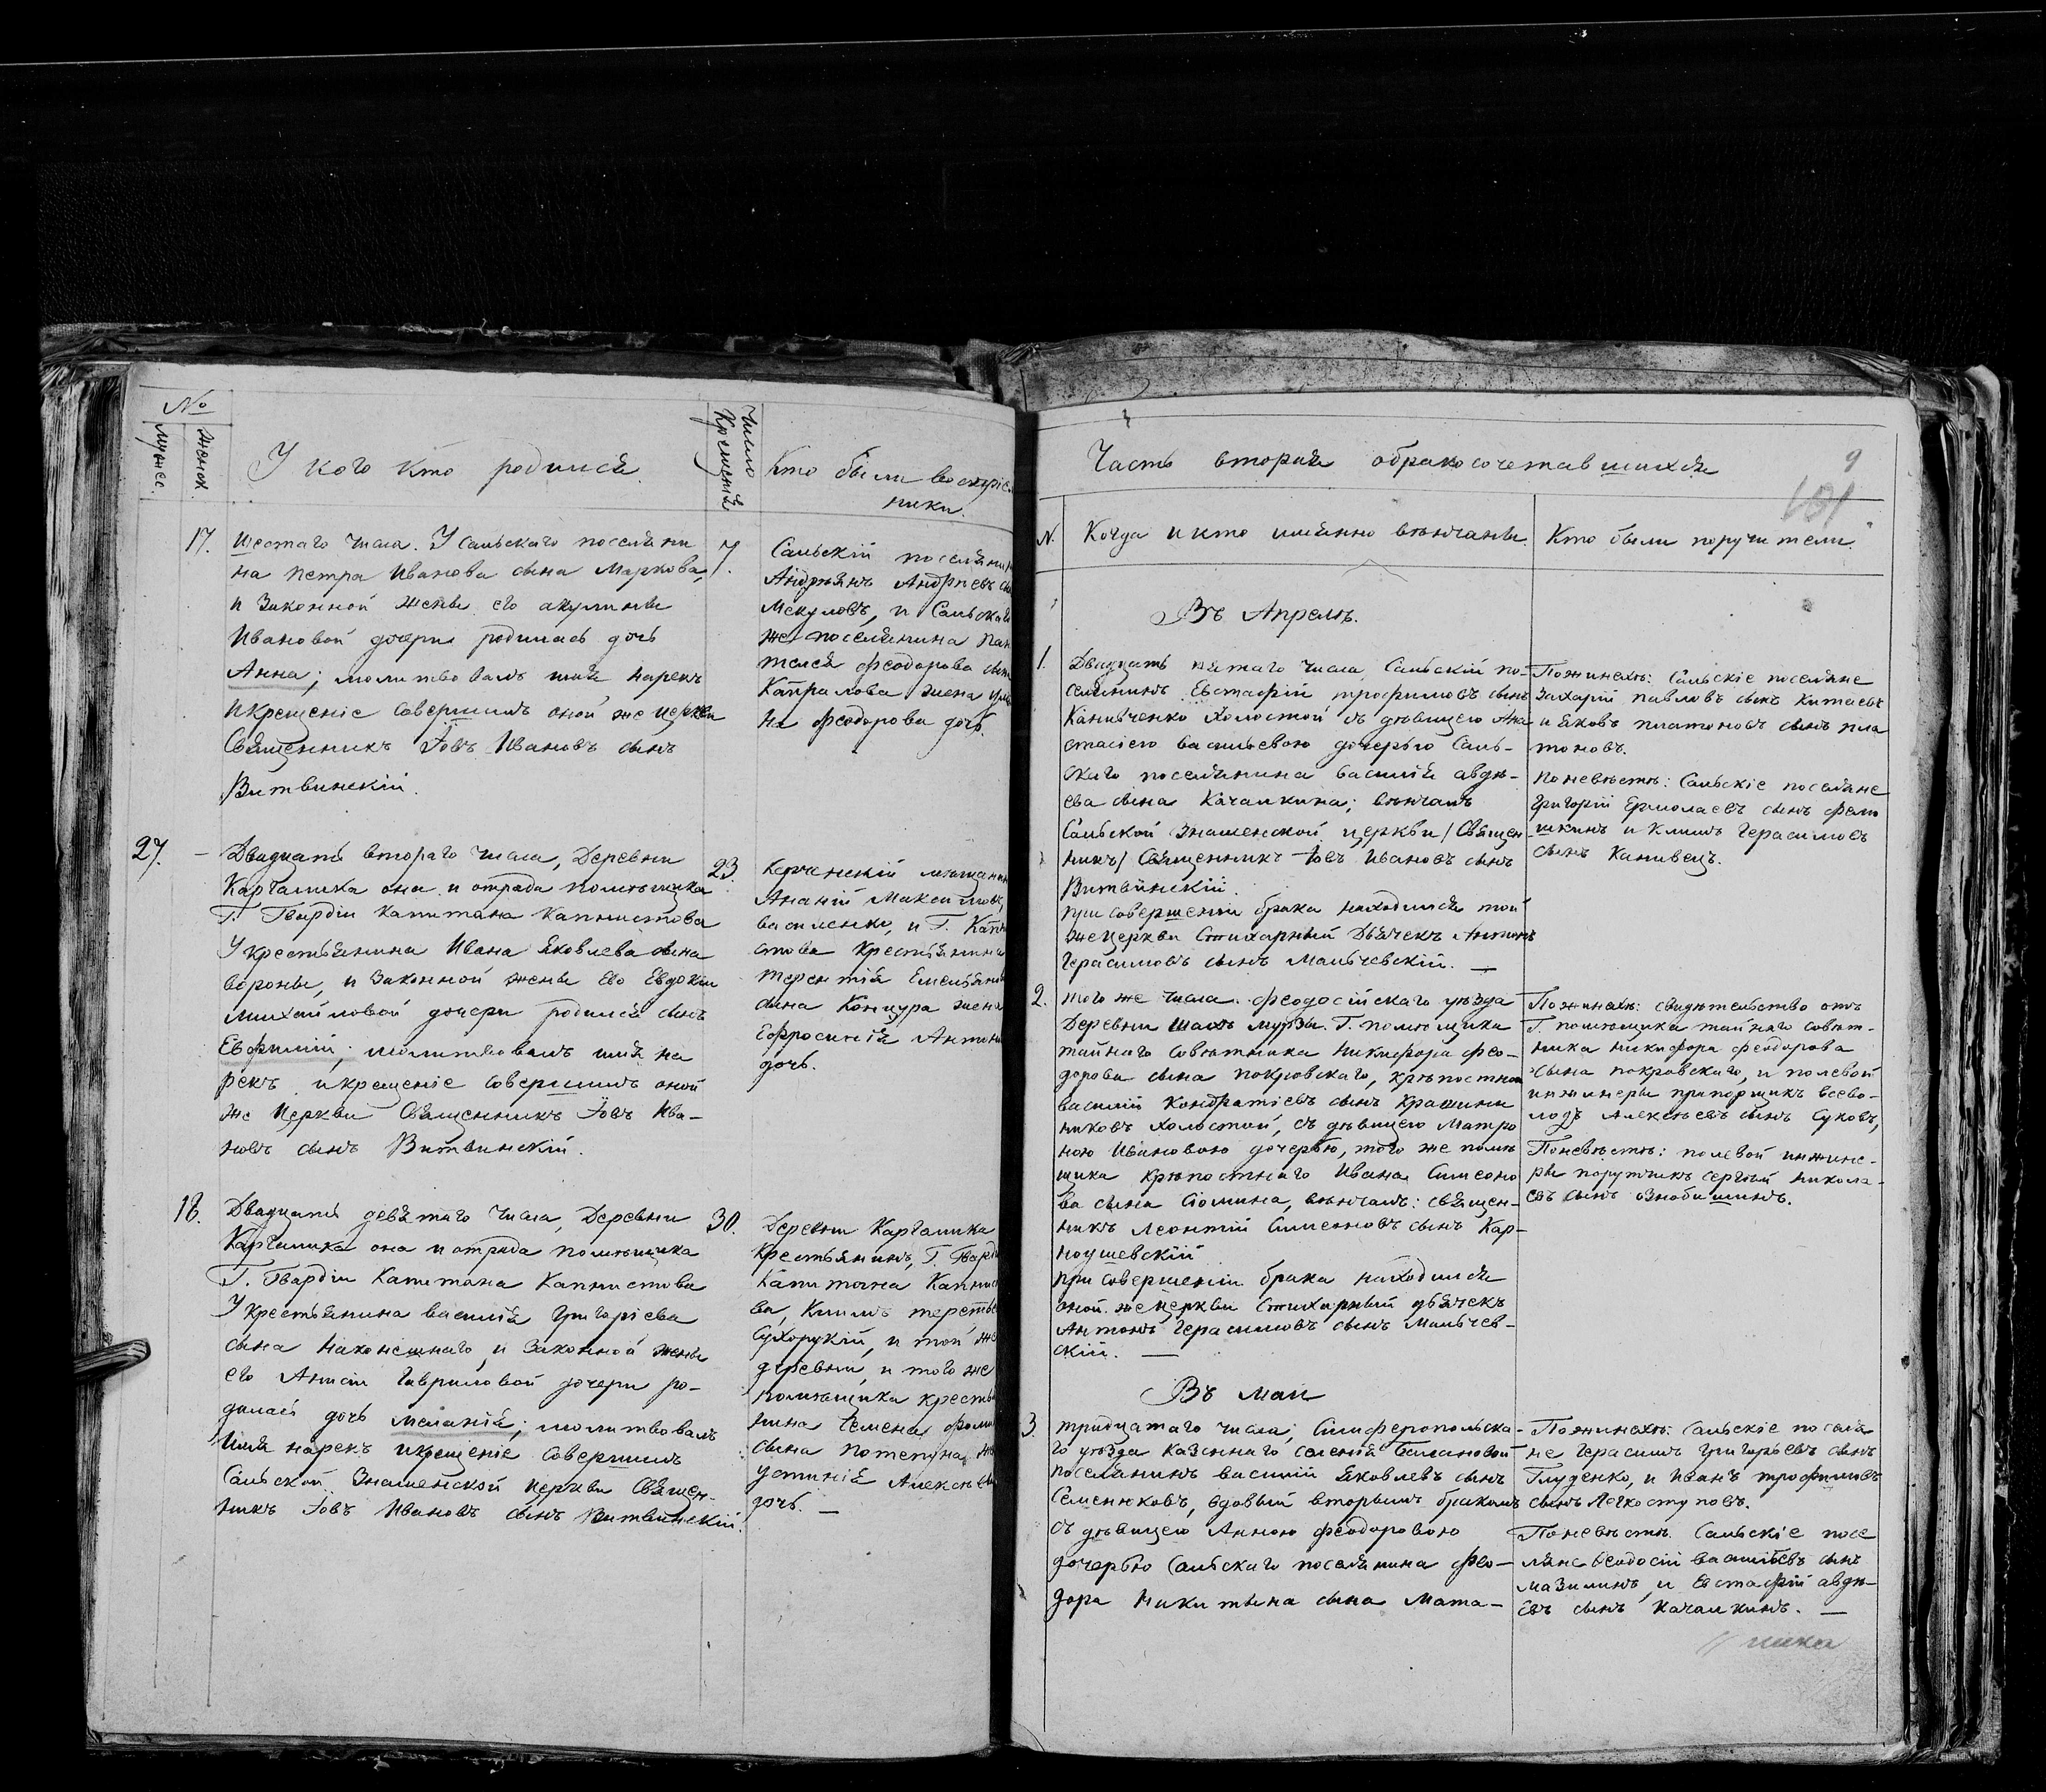 №
мужес.
женск.
У кого кто родился.
Число
Крещенія
Кто были воспріем
ники.
17.
Шестаго числа. У Сальскаго поселяни
на Петра Иванова сына Маркова,
и Законной жены его акулины
Ивановой дочери родилась дочь
Анна; молитвовалъ имя нарекъ
икрещеніе совершилъ оной же церкви
Священникъ Іовъ Ивановъ сынъ
Витвинскій.
7.
Сальскій поселянин
Андреянъ Андреевъ сы
Мекуловъ, и Сальскаго
же поселянина Пан
телея Феодорова сын
Капралова жена
на Феодорова дочь.
27. —
Двадцать втораго числа, Деревни
Каргалика она и отрада помѣщика
Г. Гвардіи Капитана Капнистова
У крестьянина Ивана Яковлева сына
вороны, и Законной жены Его Евдокіи
Михайловой дочери родился сынъ
Евфимій; молитвовалъ имя на
рекъ икрещеніе совершилъ оной
же Церкви Священникъ Іовъ Ива-
новъ сынъ Витвинскій.
23.
Керченскій мѣщанин
Ананій Максимовъ
василенко, и Г. Капн
стова крестьянина
терентія Емельяно
сына Концура жена
Ефросинія Антон
дочь.
18.
Двадцать девятаго числа, Деревни
Каргалика она и отрада помѣщика
Г. Гвардіи Капитана Капнистова
У крестьянина василія григоріева
сына Наконешнаго, и Законной жены
его Анисіи Гавриловой дочери ро-
дилась дочь меланія; молитвовалъ
имя нарекъ икрещеніе совершилъ
Сальской Знаменской церкви Священ-
никъ Іовъ Ивановъ сынъ Витвинскій.
30.
Деревни Каргалика
крестьянинъ, Г. Гварді
Капитана Капнист
ва, Климъ терентье
Сухорукій, и той же
деревни, и того же
помѣщика кресть
нина Семена фоми
сына потепуна же
устинія Алексѣев
дочь. —
Часть вторая обракосочетавшихся
9
151
N.
Когда икто имянно вѣнчаны.
Кто были поручители.
Въ Апрелѣ.
1.
Двадцать пятаго числа, Сальскій по-
селянинъ Евстафій трофимовъ сынъ
Канивченко Холостой съ дѣвицею Ана
стасіею васильевою дочерью Саль-
скаго поселянина василія авдѣ-
ева сына Качалкина; вѣнчалъ
Сальской Знаменской церкви /Священ-
никъ/ Священникъ Іовъ Ивановъ сынъ
Витвинскій.
при совершеніи брака находился той
же церкви Стихарный Дьячекъ Антонъ
Герасимовъ сынъ Мальчевскій. —
Поженихѣ: Сальскіе поселяне
Захарій павловъ сынъ Китаевъ
и яковъ платоновъ сынъ пла
тоновъ.
Поневѣстѣ: Сальскіе поселяне
Григорій Ермолаевъ сынъ
шкинъ и Климъ герасимовъ
сынъ Канивецъ.
2.
того же числа. Феодосійскаго уѣзда
Деревни Шахъ мурзы. Г. помѣщика
тайнаго совѣтника никифора фео-
дорова сына покровскаго, крѣпостной
василій Кондратіевъ сынъ Крашени
никовъ Холостой, съ дѣвицею Матро
ною Ивановою дочерью, того же помѣ
щика крѣпостнаго Ивана Симеоно
ва сына Сіомина, вѣнчалъ: священ-
никъ Леонтій Симеоновъ сынъ Кар-
ноушевскій
при совершеніи брака находился
оной же церкви стихарный дьячекъ
Антонъ Герасимовъ сынъ Мальчев-
скій. —
Поженихѣ: свидѣтельство отъ
Г. помѣщика тайнаго совѣт-
ника никифора феодорова
сына покровскаго, и полевой
инженеры прапорщикъ всево-
лодъ Алексѣевъ сынъ Суковъ,
Поневѣстѣ: полевой инжене-
ры поручикъ сергѣй никола-
евъ сынъ ознобишинъ.
Въ маи
3.
тридцатаго числа, Симферопольска-
го уѣзда Казеннаго селенія Балановой
поселянинъ василій яковлевъ сынъ
Семенюковъ, вдовый вторымъ бракомъ
съ дѣвицею Анною феодоровою
дочерью Сальскаго поселянина фео-
дора Никитина сына Мата-
Поженихѣ: сальскіе поселя
не герасимъ Григорьевъ сынъ
Глуденко, и Иванъ трофимовъ
сынъ Легкоступовъ.
Поневѣстѣ. Сальскіе посе
ляне Феодосій васильевъ сынъ
мазилинъ, и Евстафій авдѣ-
евъ сынъ Качалкинъ. —